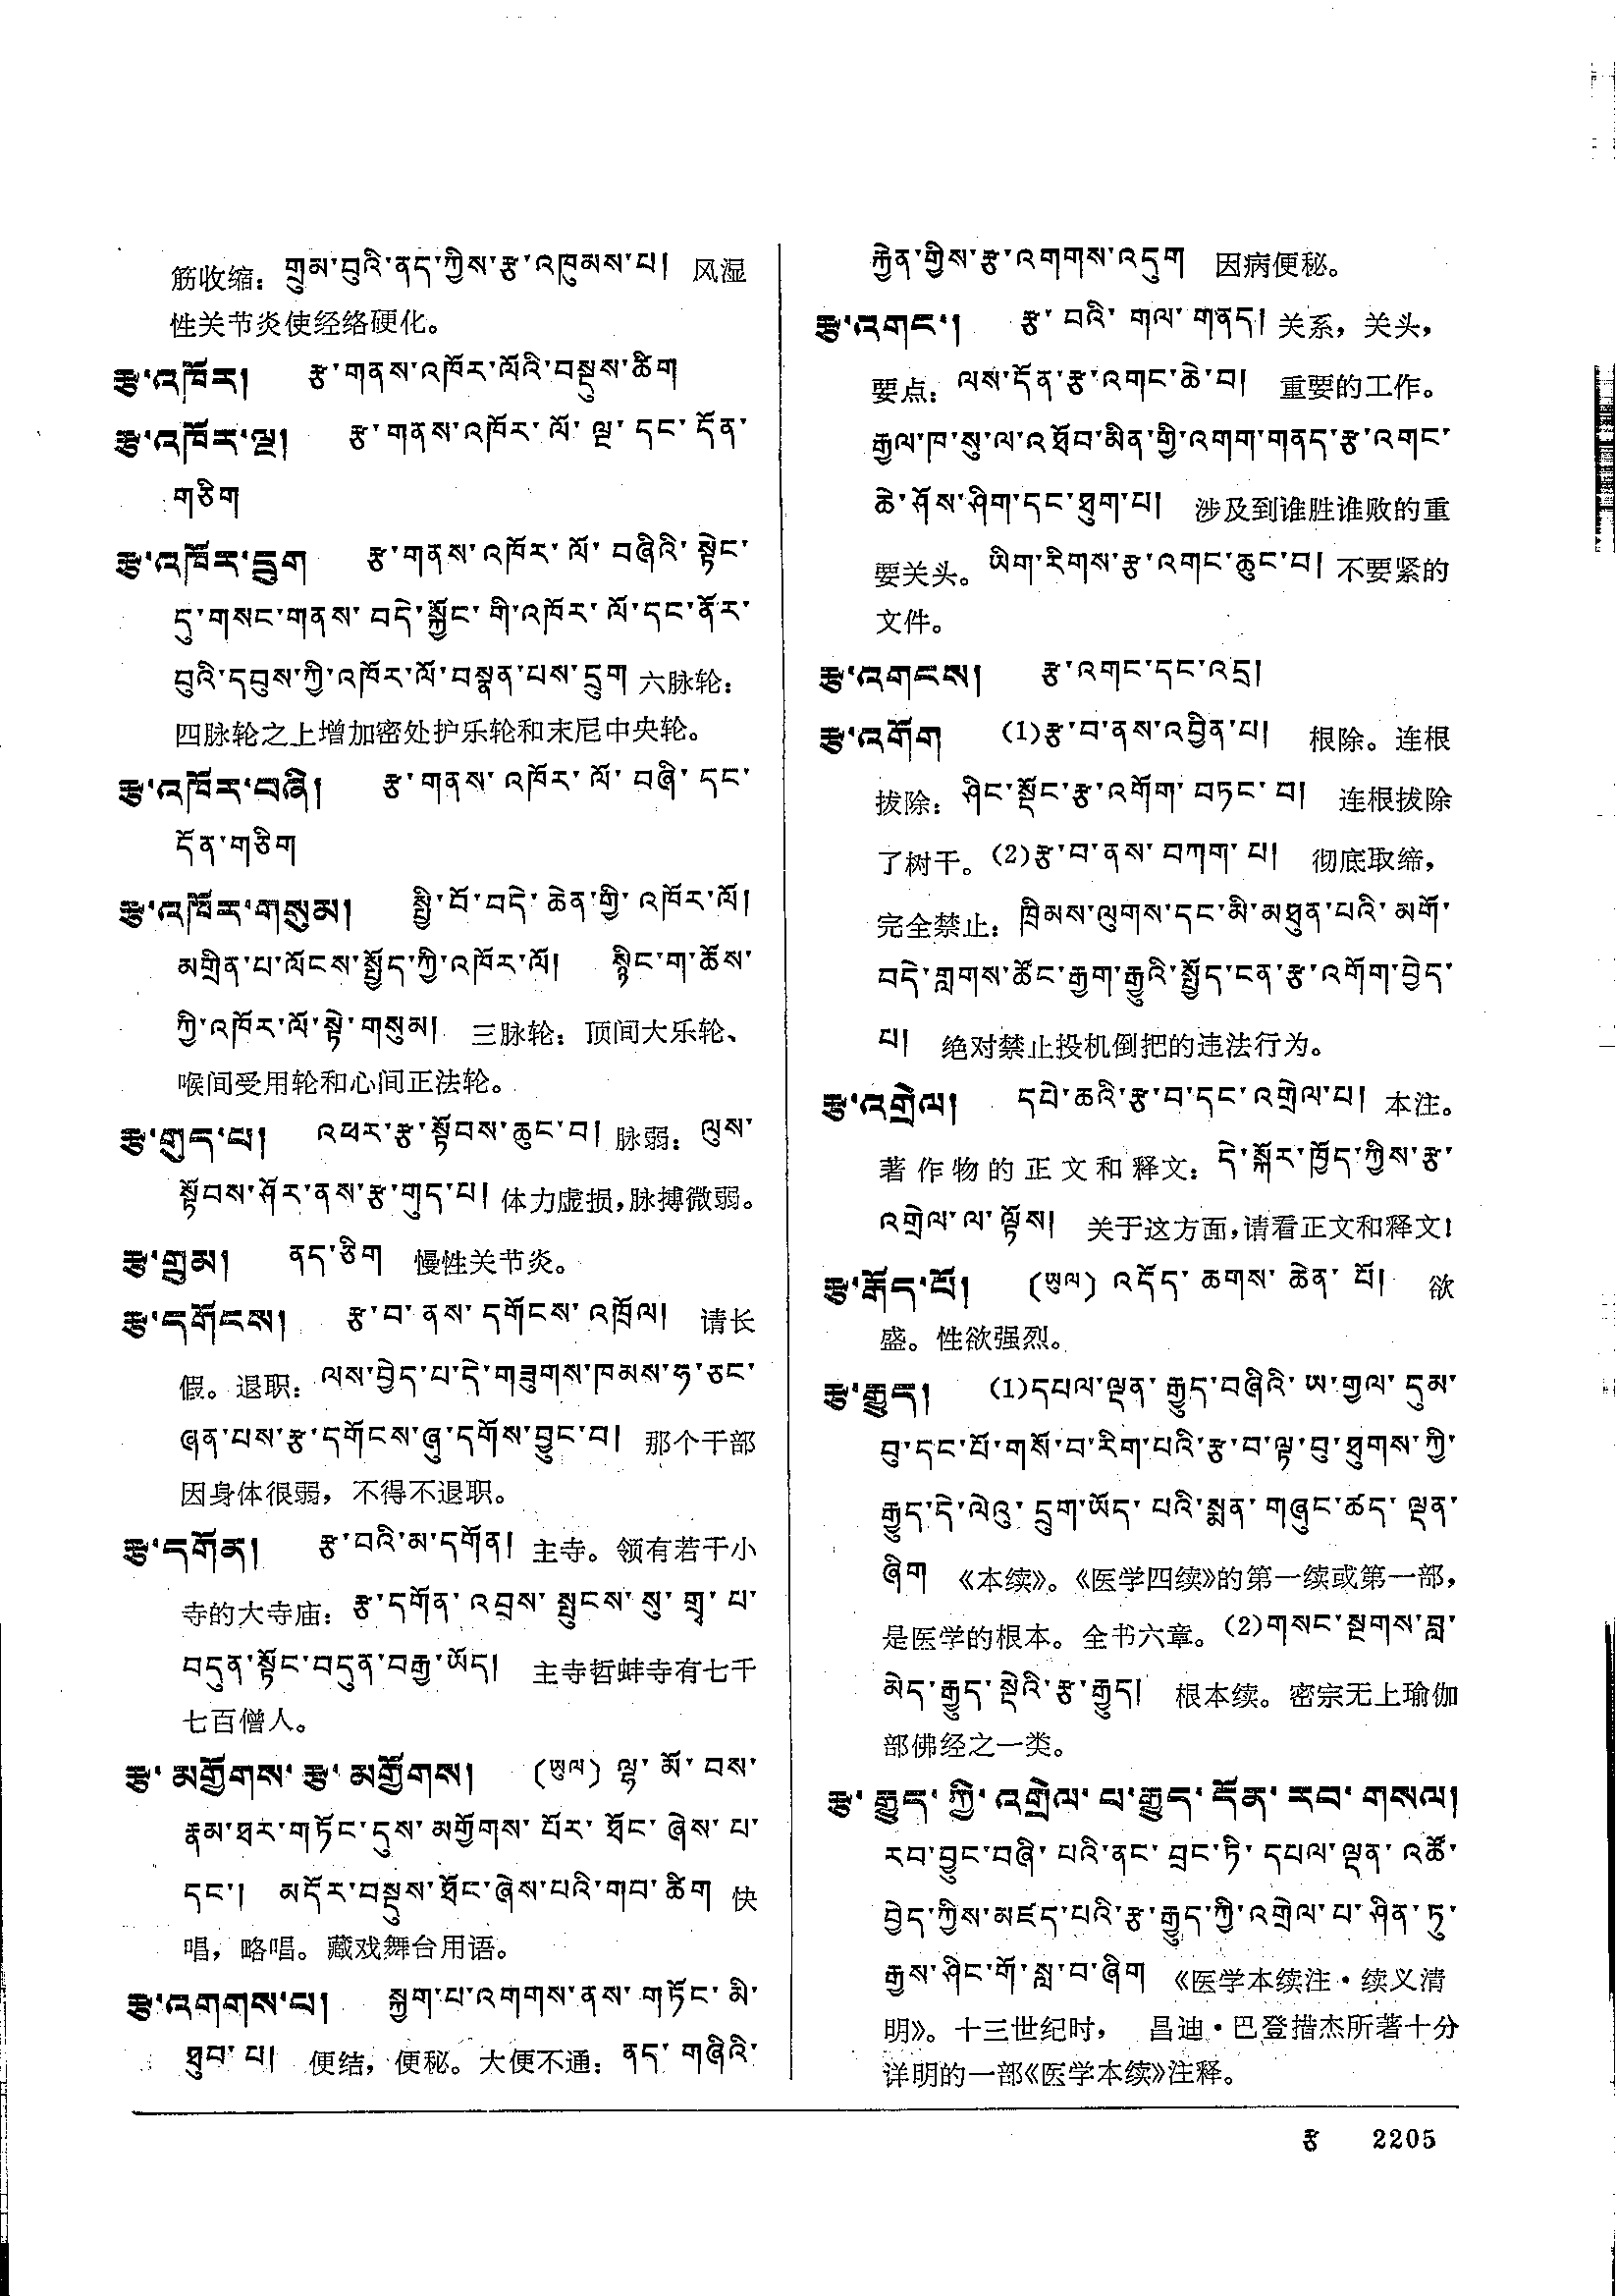 筋收缩：གྲུམ་བུའི་ནད་ཀྱིས་རྩ་འཁུམས་པ། 风湿
性关节炎使经络硬化。
རྩ་འཁོར། རྩ་གནས་འཁོར་ལོའི་བསྡུས་ཚིག
རྩ་འཁོར་ལྔ། རྩ་གནས་འཁོར་ལོ་ལྔ་དང་དོན་
གཅིག
རྩ་འཁོར་དྲུག རྩ་གནས་འཁོར་ལོ་བཞིའི་སྟེང་
དུ་གསང་གནས་བདེ་སྐྱོང་གི་འཁོར་ལོ་དང་ནོར་
བུའི་དབུས་ཀྱི་འཁོར་ལོ་བསྣན་པས་དྲུག 六脉轮：
四脉轮之上增加密处护乐轮和末尼中央轮。
རྩ་འཁོར་བཞི། རྩ་གནས་འཁོར་ལོ་བཞི་དང་
དོན་གཅིག
རྩ་འཁོར་གསུམ། སྤྱི་བོ་བདེ་ཆེན་གྱི་འཁོར་ལོ།
མགྲིན་པ་ལོངས་སྤྱོད་ཀྱི་འཁོར་ལོ། སྙིང་ག་ཆོས་
ཀྱི་འཁོར་ལོ་སྟེ་གསུམ། 三脉轮：顶间大乐轮、
喉间受用轮和心间正法轮。
རྩ་གུད་པ། འཕར་རྩ་སྟོབས་ཆུང་བ། 脉弱：ལུས་
སྟོབས་ཤོར་ནས་རྩ་གུད་པ། 体力虚损，脉搏微弱。
རྩ་གྲུམ། ནད་ཅིག 慢性关节炎。
རྩ་དགོངས། རྩ་བ་ནས་དགོངས་འཁྲོལ། 请长
假。退职：ལས་བྱེད་པ་དེ་གཟུགས་ཁམས་ཧ་ཅང་
ཞན་པས་རྩ་དགོངས་ཞུ་དགོས་བྱུང་བ། 那个干部
因身体很弱，不得不退职。
རྩ་དགོན། རྩ་བའི་མ་དགོན། 主寺。领有若干小
寺的大寺庙：རྩ་དགོན་འབྲས་སྤུངས་སུ་གྲྭ་པ་
བདུན་སྟོང་བདུན་བརྒྱ་ཡོད། 主寺哲蚌寺有七千
七百僧人。
རྩ་མགྱོགས་རྩ་མགྱོགས། (ཡུལ) ལྷ་མོ་བས་
རྣམ་ཐར་གཏོང་དུས་མགྱོགས་པོར་ཐོང་ཞེས་པ་
དང་། མདོར་བསྡུས་ཐོང་ཞེས་པའི་གབ་ཚིག 快
唱，略唱。藏戏舞台用语。
རྩ་འགགས་པ། སྐྱག་པ་འགགས་ནས་གཏོང་མི་
ཐུབ་པ། 便结，便秘。大便不通：ནད་གཞིའི་
རྐྱེན་གྱིས་རྩ་འགགས་འདུག 因病便秘。
རྩ་འགང་། རྩ་བའི་གལ་གནད། 关系，关头，
要点：ལས་དོན་རྩ་འགང་ཆེ་བ། 重要的工作。
རྒྱལ་ཁ་སུ་ལ་འཐོབ་མིན་གྱི་འགག་གནད་རྩ་འགང་
ཆེ་ཤོས་ཤིག་དང་ཐུག་པ། 涉及到谁胜谁败的重
要关头。ཡིག་རིགས་རྩ་འགང་ཆུང་བ། 不要紧的
文件。
རྩ་འགངས། རྩ་འགང་དང་འདྲ།
རྩ་འགོག (1)རྩ་བ་ནས་འབྱིན་པ། 根除。连根
拔除：ཤིང་སྡོང་རྩ་འགོག་བཏང་བ། 连根拔除
了树干。(2)རྩ་བ་ནས་བཀག་པ། 彻底取缔，
完全禁止：ཁྲིམས་ལུགས་དང་མི་མཐུན་པའི་མགོ་
བདེ་གླགས་ཚོང་རྒྱག་རྒྱུའི་སྤྱོད་ངན་རྩ་འགོག་བྱེད་
པ། 绝对禁止投机倒把的违法行为。
རྩ་འགྲེལ། དཔེ་ཆའི་རྩ་བ་དང་འགྲེལ་པ། 本注。
著作物的正文和释文：དེ་སྐོར་ཁྱོད་ཀྱིས་རྩ་
འགྲེལ་ལ་ལྟོས། 关于这方面，请看正文和释文！
རྩ་རྒོད་པོ། (ཡུལ) འདོད་ཆགས་ཆེན་པོ། 欲
盛。性欲强烈。
རྩ་རྒྱུད། (1)དཔལ་ལྡན་རྒྱུད་བཞིའི་ཨ་གྱལ་དུམ་
བུ་དང་པོ་གསོ་བ་རིག་པའི་རྩ་བ་ལྟ་བུ་ཐུགས་ཀྱི་
རྒྱུད་དེ་ལེའུ་དྲུག་ཡོད་པའི་སྨན་གཞུང་ཚད་ལྡན་
ཞིག 《本续》。《医学四续》的第一续或第一部，
是医学的根本。全书六章。(2)གསང་སྔགས་བླ་
མེད་རྒྱུད་སྡེའི་རྩ་རྒྱུད། 根本续。密宗无上瑜伽
部佛经之一类。
རྩ་རྒྱུད་ཀྱི་འགྲེལ་པ་རྒྱུད་དོན་རབ་གསལ།
རབ་བྱུང་བཞི་པའི་ནང་བྲང་ཏི་དཔལ་ལྡན་འཚོ་
བྱེད་ཀྱིས་མཛད་པའི་རྩ་རྒྱུད་ཀྱི་འགྲེལ་པ་ཤིན་ཏུ་
རྒྱས་ཤིང་གོ་སླ་བ་ཞིག 《医学本续注·续义清
明》。十三世纪时， 昌迪·巴登措杰所著十分
详明的一部《医学本续》注释。
རྩ 2205